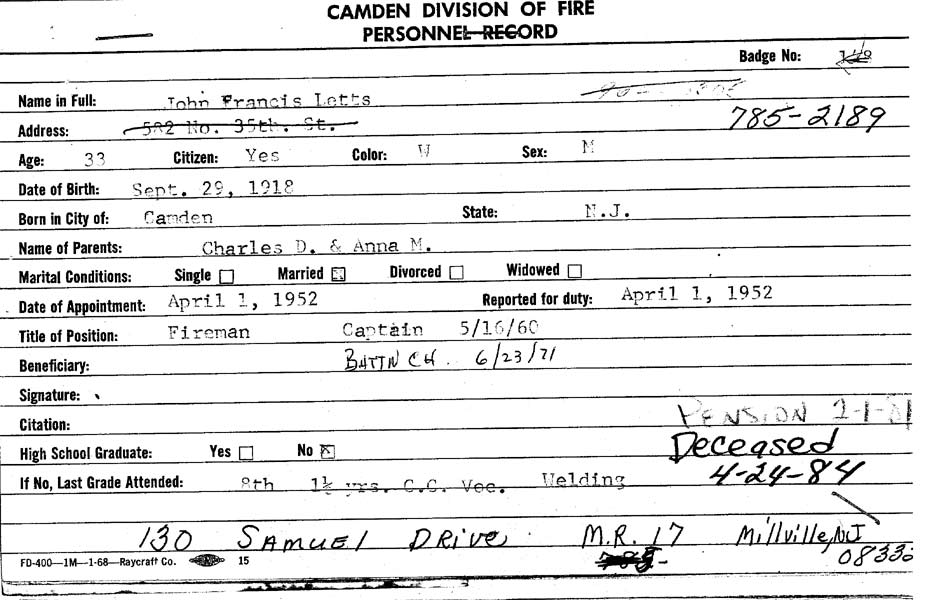 CAMDEN DIVISION OF FIRE
PERSONNEL RECORD
Badge No:
Name in Full: John Francis Letts
785-2189
Address: 582 No. 35th. St.
Age: 33 Citizen: Yes Color: W Sex: M
Date of Birth: Sept. 29, 1918
Born in City of: Camden State: N.J.
Name of Parents: Charles D. & Anna M.
Marital Conditions: Single Married Divorced Widowed
Date of Appointment: April 1, 1952 Reported for duty: April 1, 1952
Title of Position: Fireman Captain 5/16/60
Beneficiary: BATTN CH. 6/23/71
Signature:
PENSION 2-1-81
Citation:
Deceased
High School Graduate: Yes No
4-24-84
If No, Last Grade Attended: 8th 1½ yrs. C.C. Voc. Welding
130 SAMUEL DRIVE M.R. 17 Millville, NJ
08332
FD-400—1M—1-68—Raycraft Co. 15